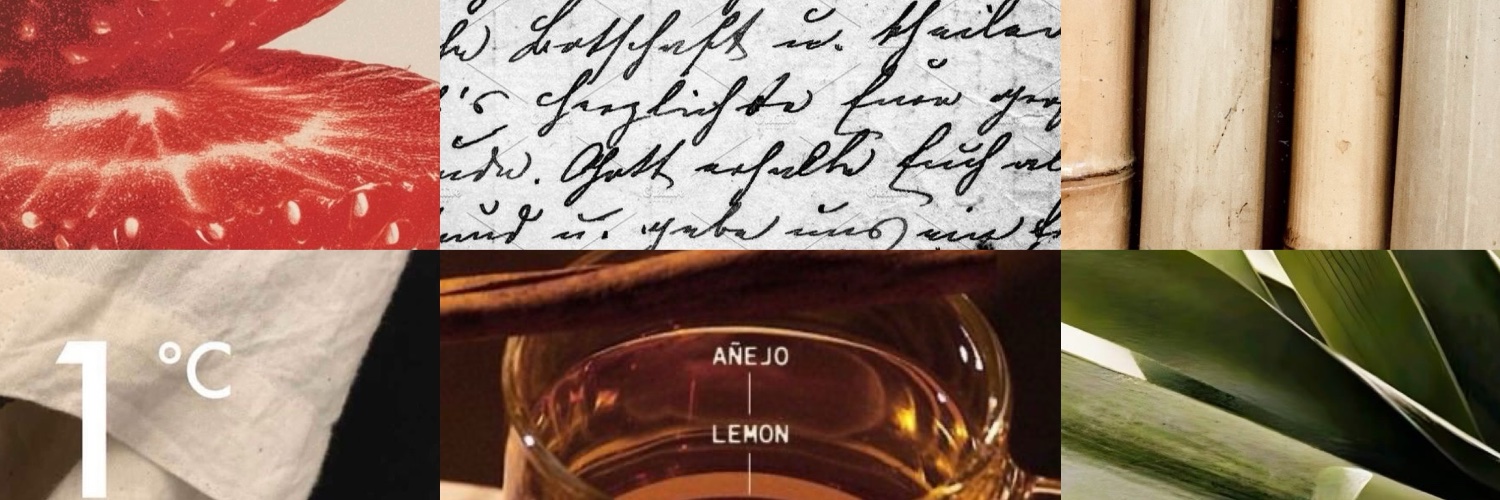 Botschaft u. theilen
's herzlichste Euer
Gott erhalte Euch
und u. gebe uns ein
1 °C
AÑEJO
LEMON